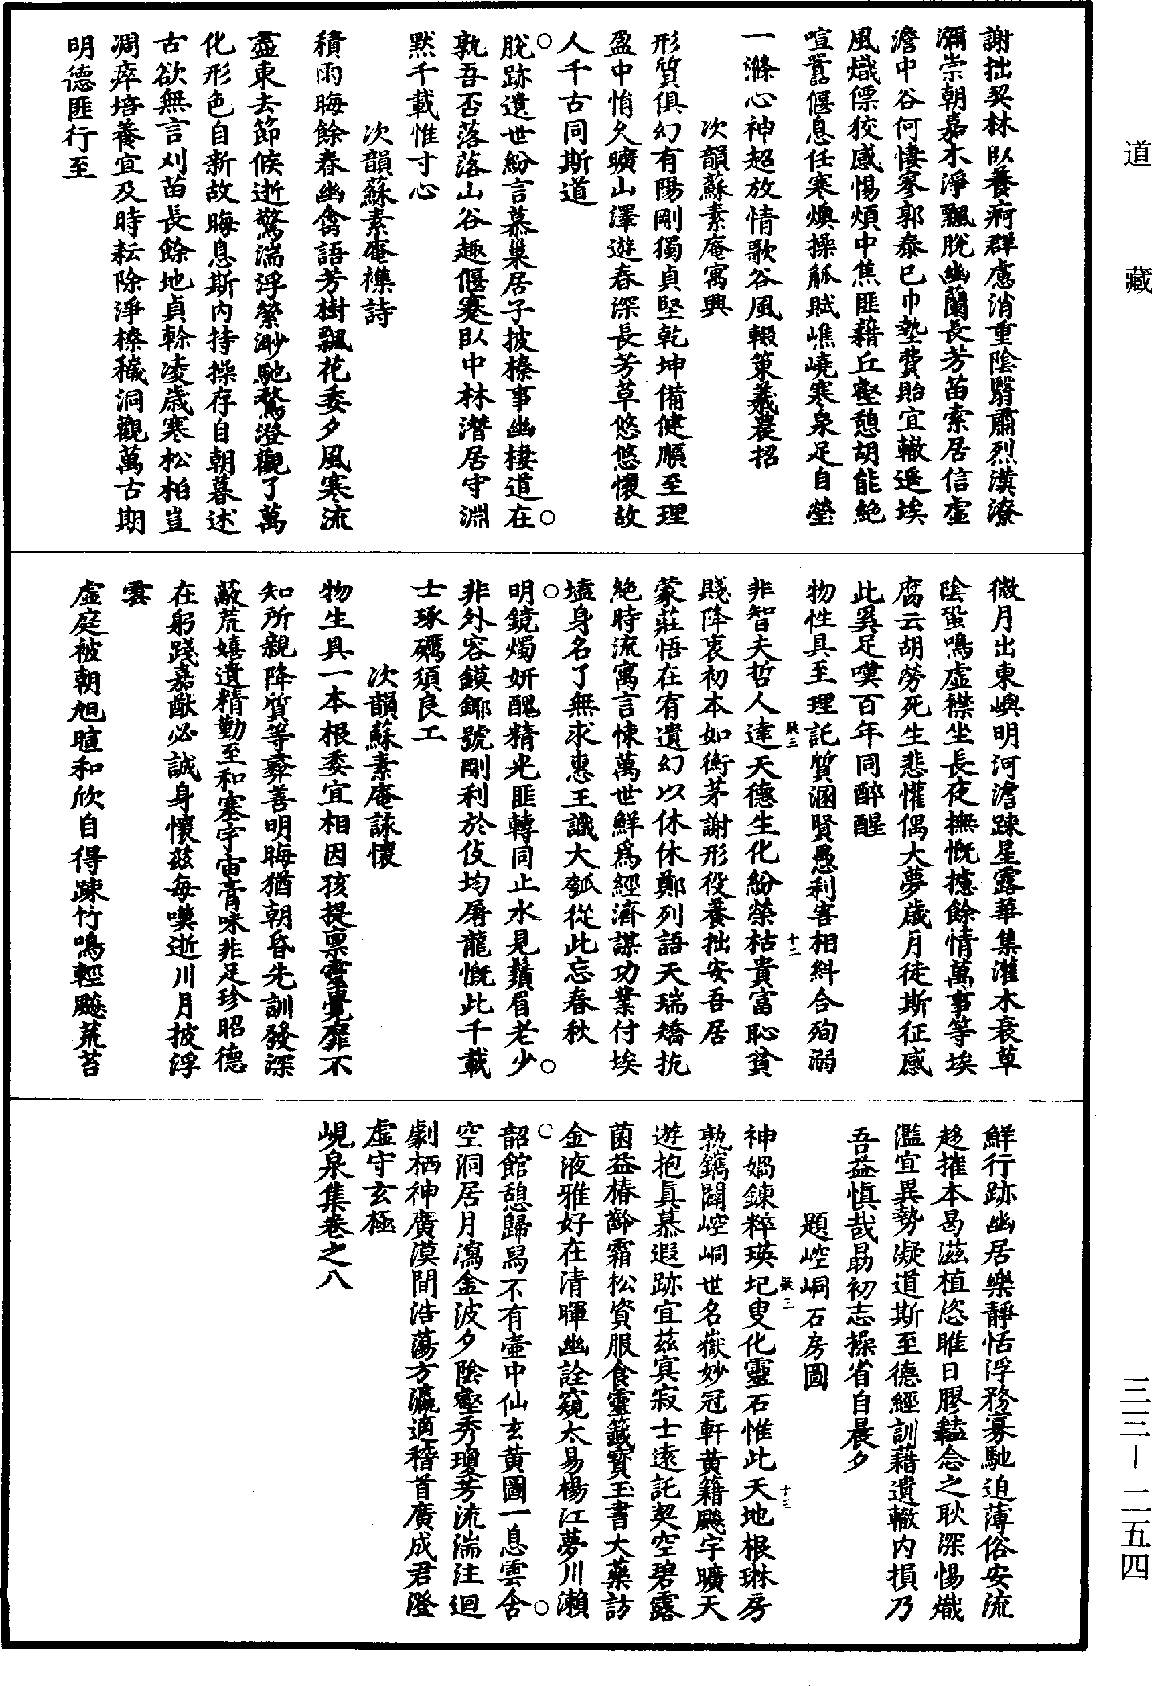 道藏
謝拙契林臥養痾群慮消重陰翳肅烈漢潦
瀰崇朝嘉木淨飄脫幽蘭長芳苗索居信虛
澹中谷何悽寥郭泰已巾墊費貽宜轍遥埃
風熾僄狡感惕煩中焦匪藉丘壑憩胡能絶
喧囂偃息任寒燠操觚賦嶕嶢寒泉足自瑩
一滌心神超放情歌谷風輟策羲農招
次韻蘇素庵寓興
形質俱幻有陽剛獨貞堅乾坤備健順至理
盈中悁久曠山澤遊春深長芳草悠悠懷故
人千古同斯道
脫跡遺世紛言慕巢居子披榛事幽棲道在
孰吾否落落山谷趣偃蹇臥中林潛居守淵
默千載惟寸心
次韻蘇素庵襍詩
積雨晦餘春幽禽語芳樹飄花委夕風寒流
盡東去節候逝驚湍浮縈渺馳騖澄觀了萬
化形色自新故晦息斯内持操存自朝暮述
古欲無言刈苗長餘地貞幹凌歲寒松柏豈
凋瘁培養宜及時耘除淨榛穢洞觀萬古期
明德匪行至
微月出東嶼明河澹踈星露華集灌木衰草
陰蛩鳴虛襟坐長夜撫慨攄餘情萬事等埃
腐云胡勞死生悲懽偶大夢歲月徒斯征感
此奚足嘆百年同醉醒
物性具至理託質溷賢愚利害相糾合殉溺
非智夫哲人達天德生化紛榮枯貴富恥貧
賤降衷初本如衡茅謝形役養拙安吾居
蒙莊悟在宥遺幻以休休鄭列語天瑞矯抗
絕時流寓言悚萬世鮮爲經濟謀功業付埃
壒身名了無求惠王譏大瓠從此忘春秋
明鏡燭妍醜精光匪轉同止水見鬚眉老少
非外容鏌鋣號剛利於伎均屠龍慨此千載
士琢礪須良工
次韻蘇素庵詠懷
物生具一本根委宜相因孩提禀靈覺靡不
知所親降質等彝善明晦猶朝昏先訓發深
蔽荒嬉遺精勤至和塞宇宙膏味非足珍昭德
在躬踐嘉猷必誠身懷兹每嘆逝川月披浮
雲
虛庭被朝旭暄和欣自得踈竹鳴輕飈荒苔
鮮行跡幽居樂靜恬浮務寡馳迫薄俗安流
趍摧本曷滋植恣睢日膠轕念之耿深惕熾
濫宜異勢凝道斯至德經訓藉遺轍内損乃
吾益慎哉勗初志操省自晨夕
題崆峒石房圖
神媧鍊粹瑛圯叟化靈石惟此天地根琳房
孰鐫闢崆峒世名嶽妙冠軒黄籍飈宇曠天
遊抱真慕遐跡宜兹寘寂士遠託契空碧露
菌益椿齡霜松資服食靈籤寶玉書大藥訪
金液雅好在清暉幽詮窺太易楊江夢川瀨
韶館憩歸舄不有壷中仙玄黄圖一息雲舍
空洞居月瀉金波夕陰壑秀瓊芳流湍注迴
劇栖神廣漠間浩蕩方瀛適稽首廣成君澄
虛守玄極
峴泉集卷之八
三三—二五四